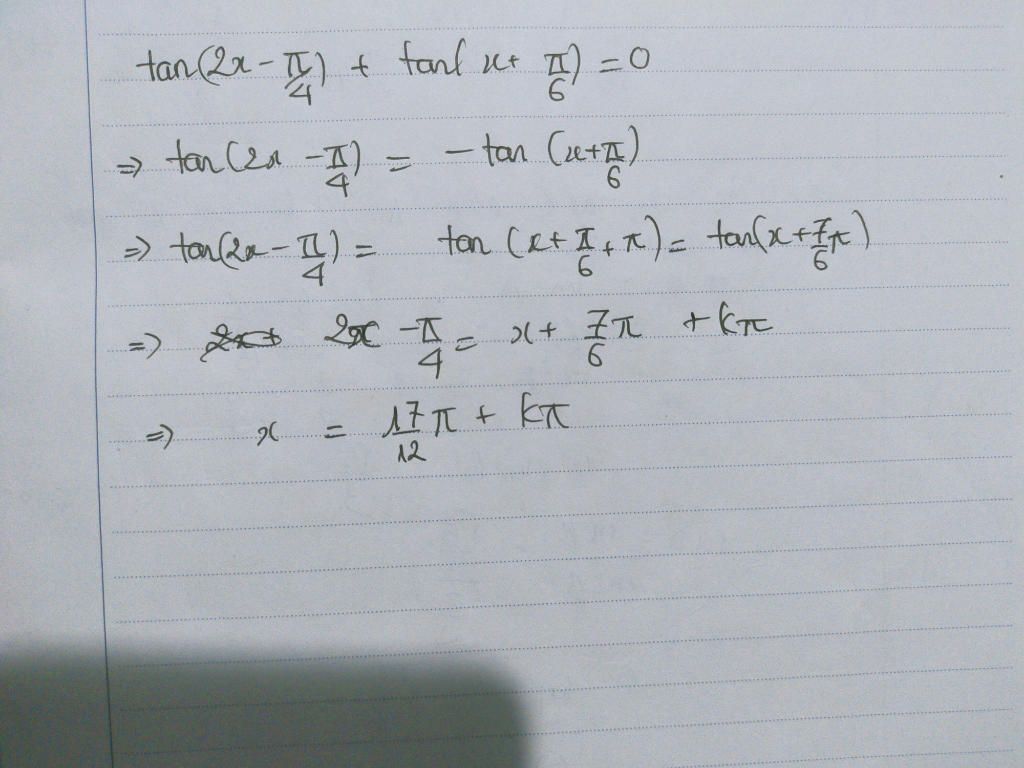 tan(2x - π/4) + tan(x + π/6) = 0
⇒ tan(2x - π/4) = - tan (x + π/6)
⇒ tan(2x - π/4) = tan (x + π/6 + π) = tan(x + 7/6 π)
⇒ 2x - π/4 = x + 7/6 π + kπ
⇒ x = 17/12 π + kπ